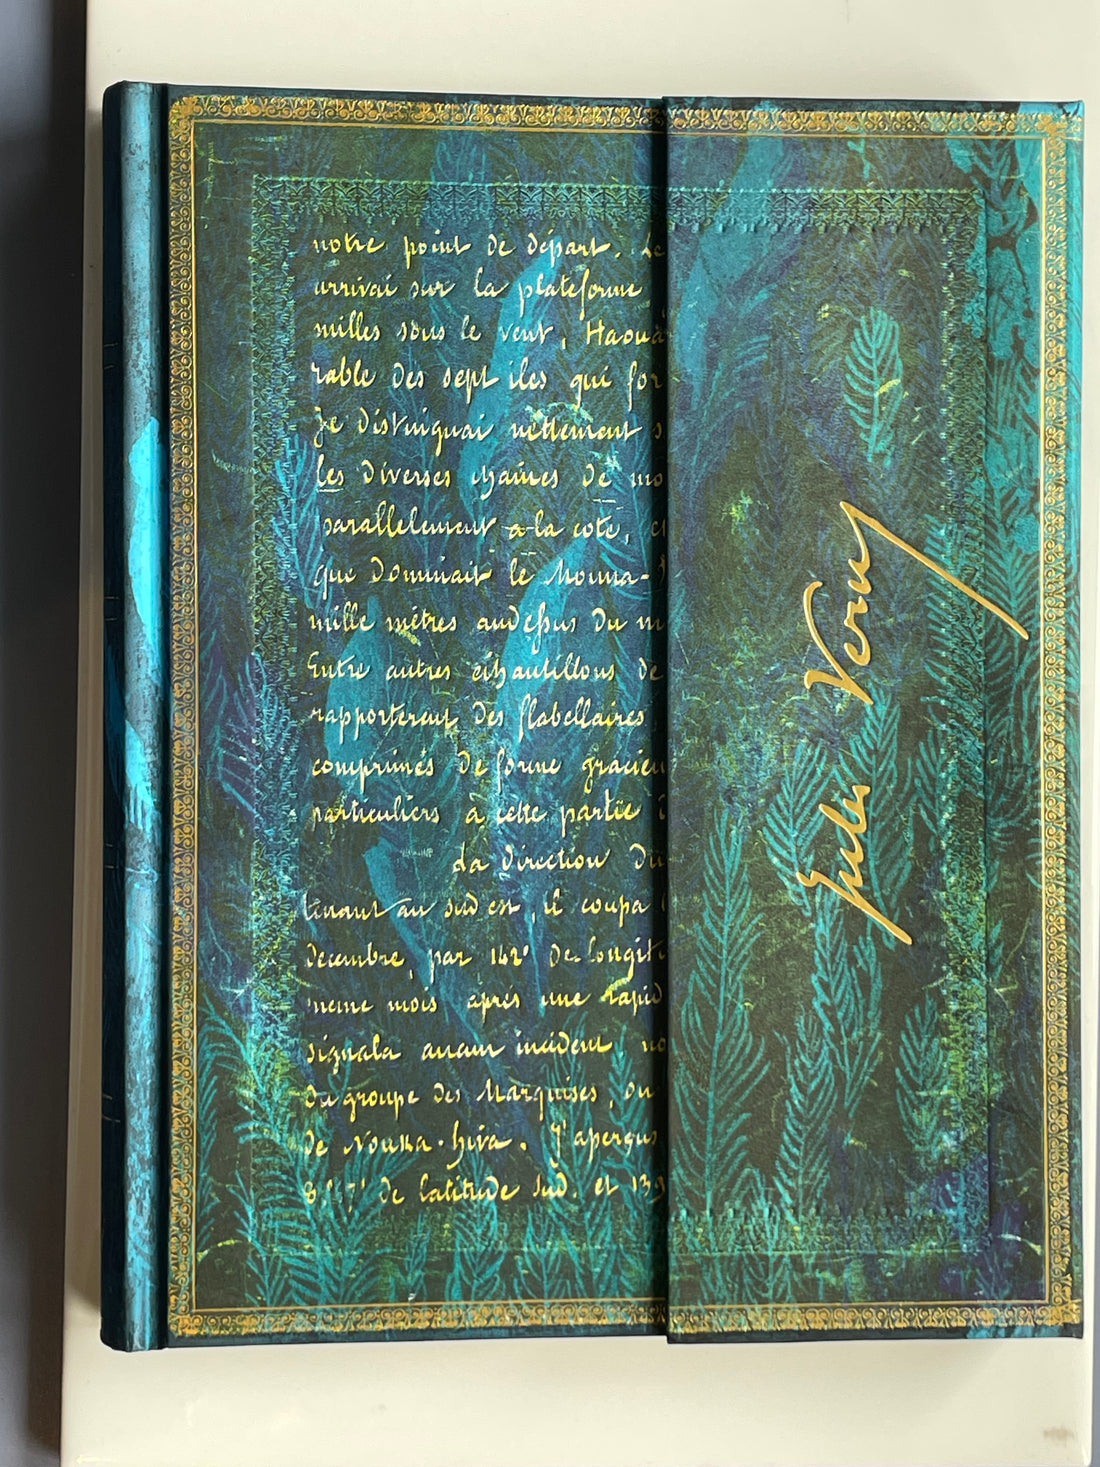 notre point de départ. Le
arrivai sur la plateforme
milles sous le vent, Haoua
rable des sept iles qui for
Je distinguai nettement s
les diverses chaines de mo
parallelement a la cote, et
que dominait le Mouna-
mille mètres audessus du m
Entre autres échantillons de
rapporterent des flabellaires
comprimés de forme gracieu
particuliers à cette partie
La direction du
tenant au sud est, il coupa
decembre, par 142° de longit
meme mois après une rapid
signala aucun incident, no
du groupe des Marquises, ou
de Nouka-hiva. J'aperçus
8°57' de latitude sud. et 139
Jules Verne